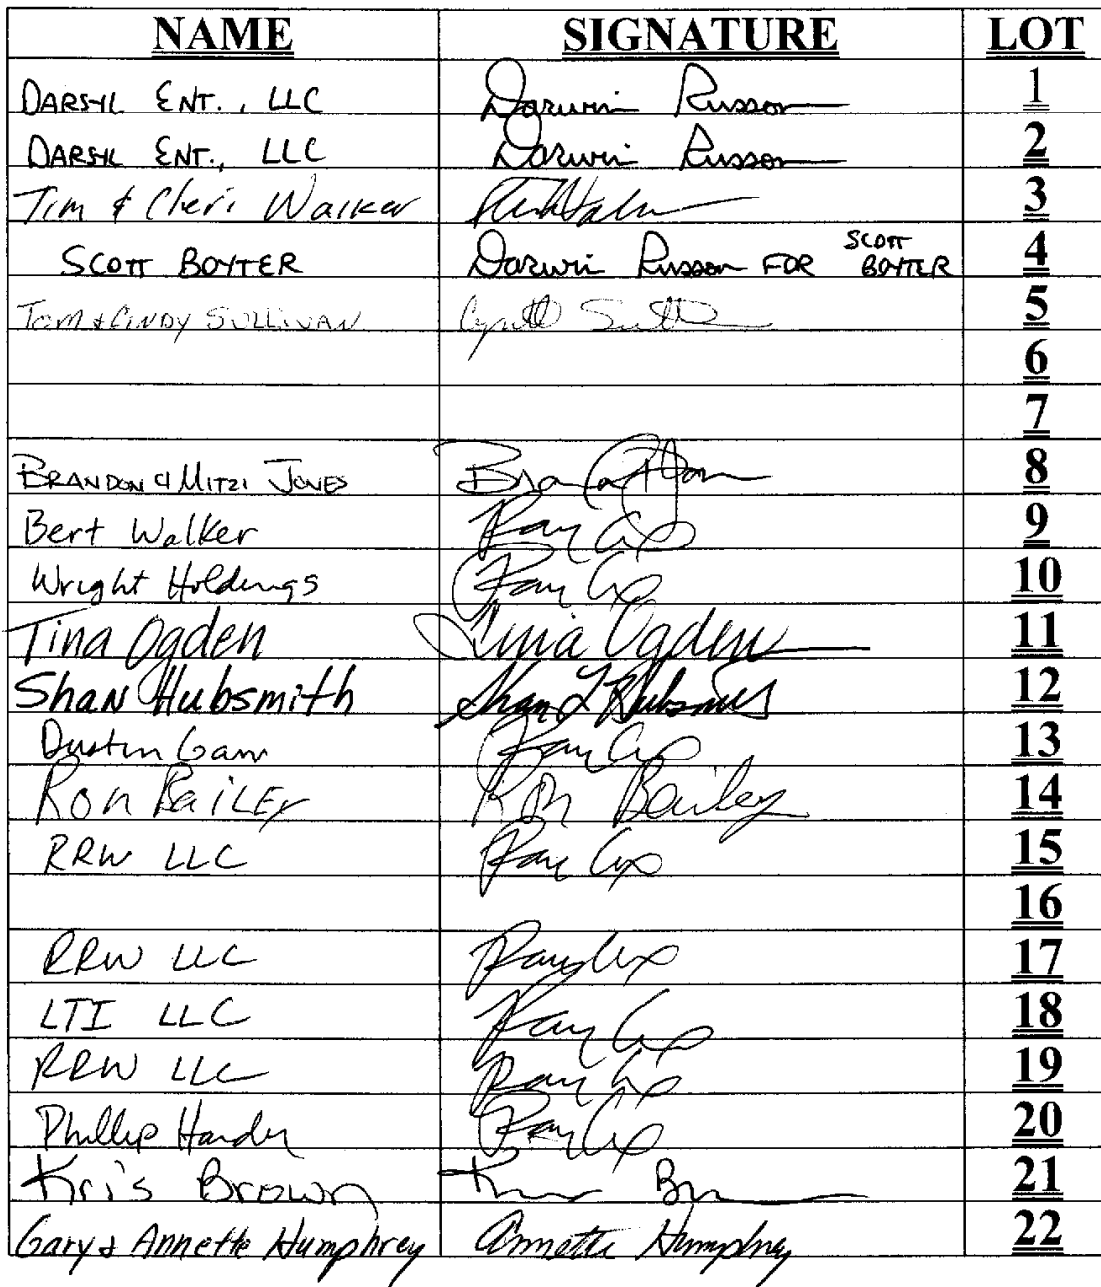 NAME SIGNATURE LOT
DARSYL ENT., LLC Darwin Russon 1
DARSYL ENT., LLC Darwin Russon 2
Tim & Cheri Walker 3
SCOTT BOYTER Darwin Russon FOR SCOTT BOYTER 4
TOM & CINDY SULLIVAN 5
6
7
BRANDON & MITZI JONES 8
Bert Walker Ray Cox 9
Wright Holdings Ray Cox 10
Tina Ogden Tina Ogden 11
Shan Hubsmith Shan L Hubsmith 12
Dustin Gann Ray Cox 13
Ron BaiLEy Ron Bailey 14
RRW LLC Ray Cox 15
16
RRW LLC Ray Cox 17
LTI LLC Ray Cox 18
RRW LLC Ray Cox 19
Phillip Ray Cox 20
Kris Brown 21
Gary & Annette Humphrey Annette Humphrey 22